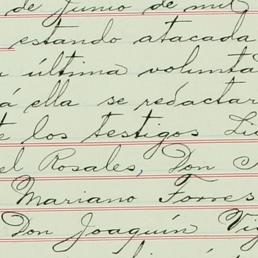 de Junio de mil
estando atacada
última volunta
á ella se redactar
te los testigos Li
el Rosales, Don
Mariano Torres
Don Joaquín Vi